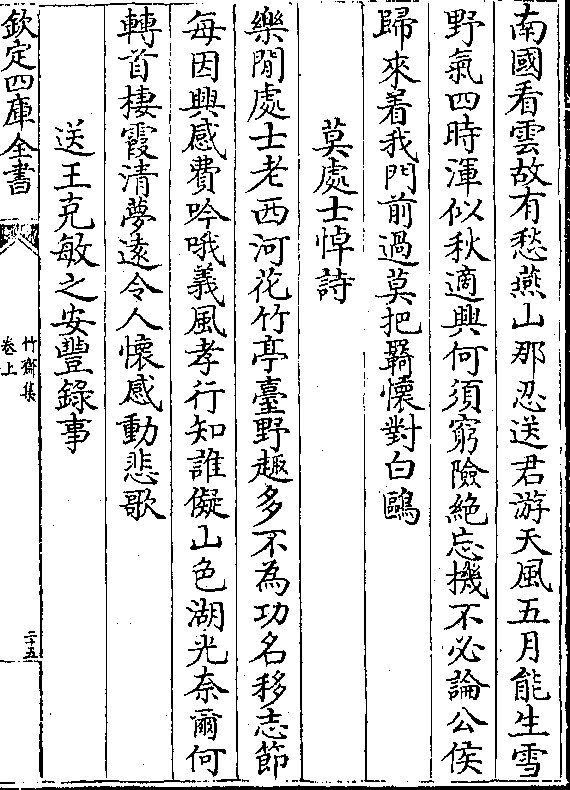 南國看雲故有愁燕山那忍送君游天風五月能生雪
野氣四時渾似秋適興何須窮險絶忘機不必論公侯
歸來着我門前過莫把羇懷對白鷗
莫處士悼詩
樂閒處士老西河花竹亭臺野趣多不為功名移志節
每因興感費吟哦義風孝行知誰儗山色湖光奈爾何
轉首棲霞清夢遠令人懷感動悲歌
送王克敏之安豐錄事
欽定四庫全書
竹齋集
卷上
二十五